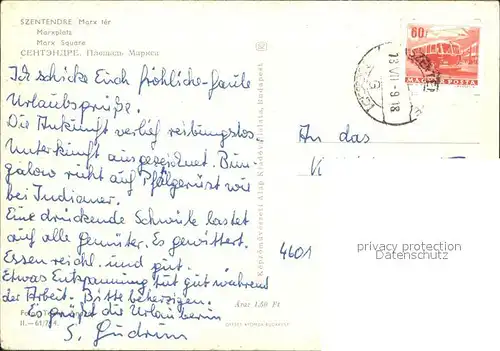 SZENTENDRE Marx tér
Marxplatz
Marx Square
СЕНТЭНДРЕ. Площадь Маркса
Ich schicke Euch fröhliche-faule
Urlaubsgrüße.
Die Ankunft verlief reibungslos.
Unterkunft ausgezeichnet. Bun-
galow ruht auf Pfahlgerüst wie
bei Indianer.
Eine drückende Schwüle lastet
auf alle Gemüter. Es gewittert.
Essen reichl. und gut.
Etwas Entspannung tut gut während
der Arbeit. Bitte beherzigen.
Es grüßt die Urlauberin
S. Gudrun
II.-61/
Ára: 1,50 Ft
Képzőművészeti Alap Kiadóvállalata, Budapest
60f
MAGYAR POSTA
An das
4601
privacy protection
Datenschutz